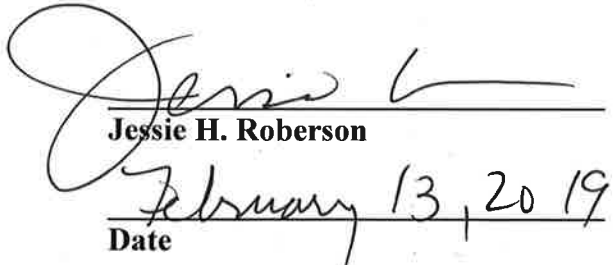 Jessie
Jessie H. Roberson
February 13, 2019
Date